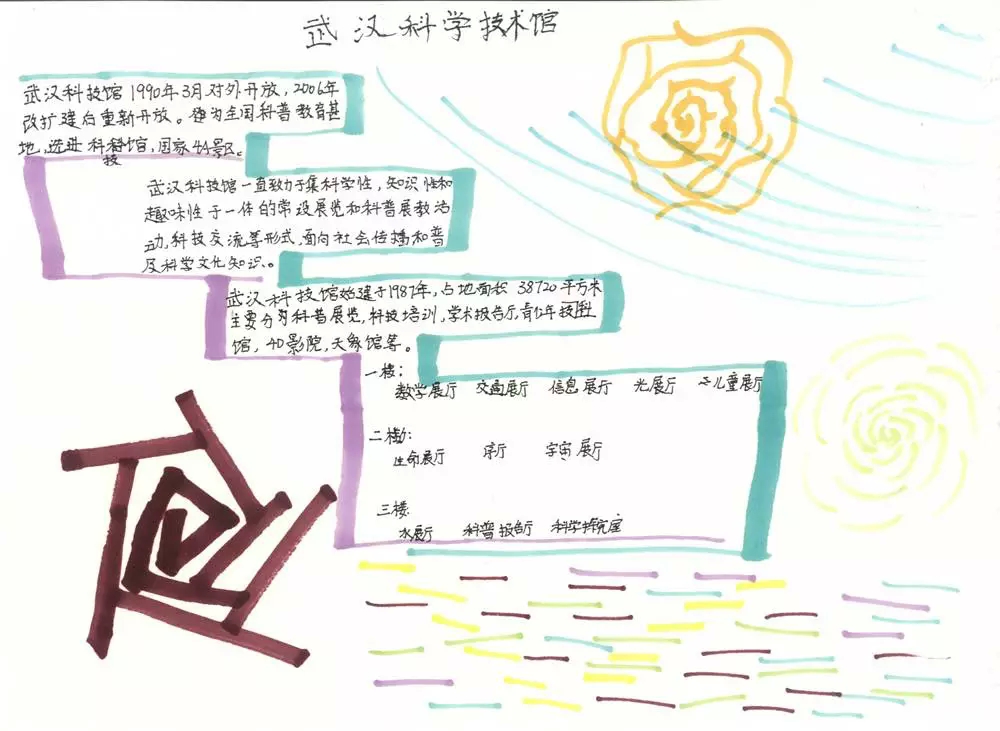 武汉科学技术馆
武汉科技馆1990年3月对外开放，2006年
改扩建后重新开放。为全国科普教育基
地，先进科技馆，国家4A景区。
武汉科技馆一直致力于集科学性，知识性和
趣味性于一体的常设展览和科普展教活
动，科技交流等形式，面向社会传播和普
及科学文化知识。
武汉科技馆始建于1987年，占地面积38720平方米
主要分为科普展览，科技培训，学术报告厅，青少年
馆，4D影院，天象馆等。
一楼：
数学展厅 交通展厅 信息展厅 光展厅 儿童展厅
二楼：
生命展厅 宇宙展厅
三楼：
水展厅 科普报告厅 科学探究室